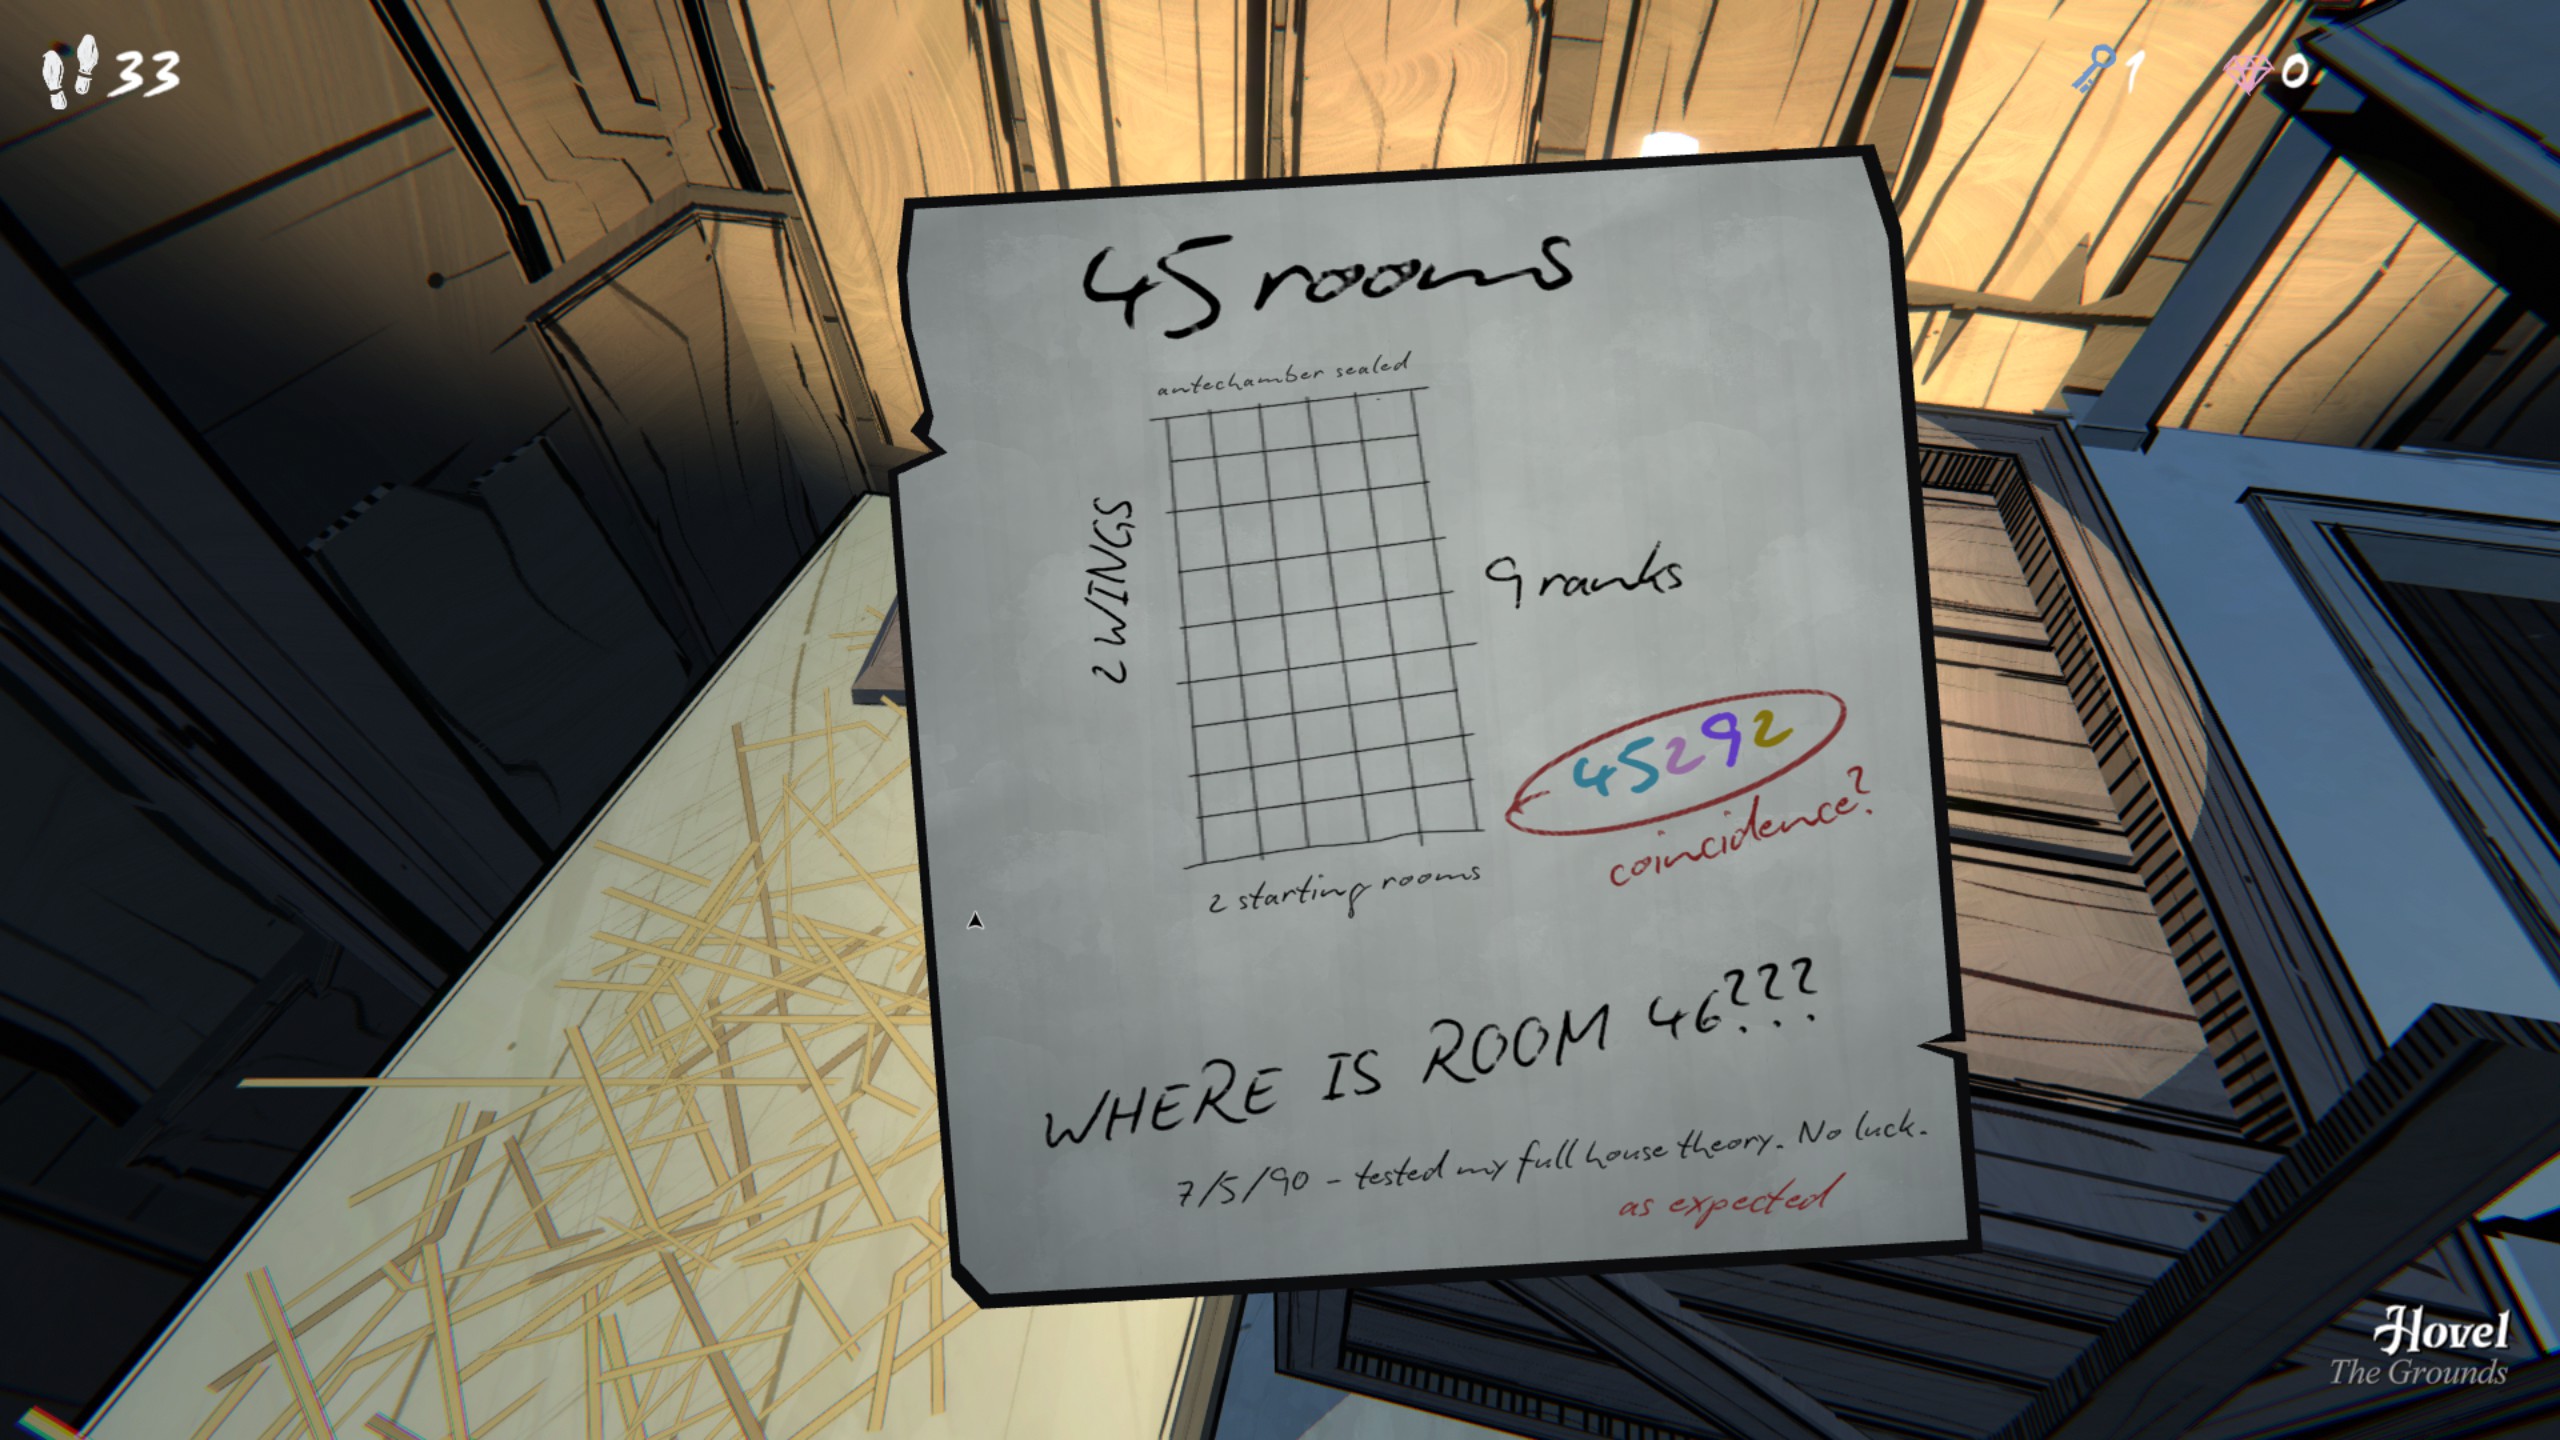 33
1
0
45 rooms
antechamber sealed
2 WINGS
9 ranks
45292
coincidence?
2 starting rooms
WHERE IS ROOM 46???
7/5/90 - tested my full house theory. No luck.
as expected
Hovel
The Grounds